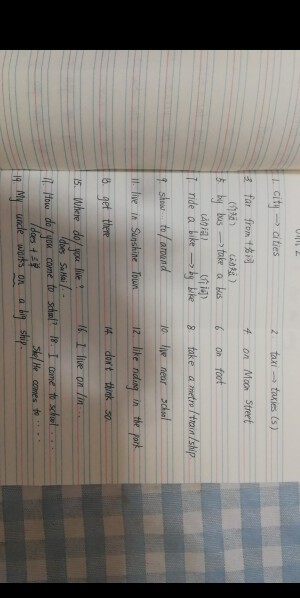 Unit 2
1. city → cities 2. taxi → taxies (s)
3. far from + 名词 4. on Moon Street
(介词) (动词)
5 by bus → take a bus 6 on foot
(动词) (介词)
7 ride a bike → by bike 8 take a metro / train / ship
9 show to / around 10 live near school
11 live in Sunshine Town 12 like riding in the park
13. get there 14. don't think so.
15. Where do / you live? 16. I live on / in ...
/ does Su Hai / ..
17. How do / you come to school? 18. I come to school ....
/ does + 三单 She / He comes to ....
19. My uncle works on a big ship.